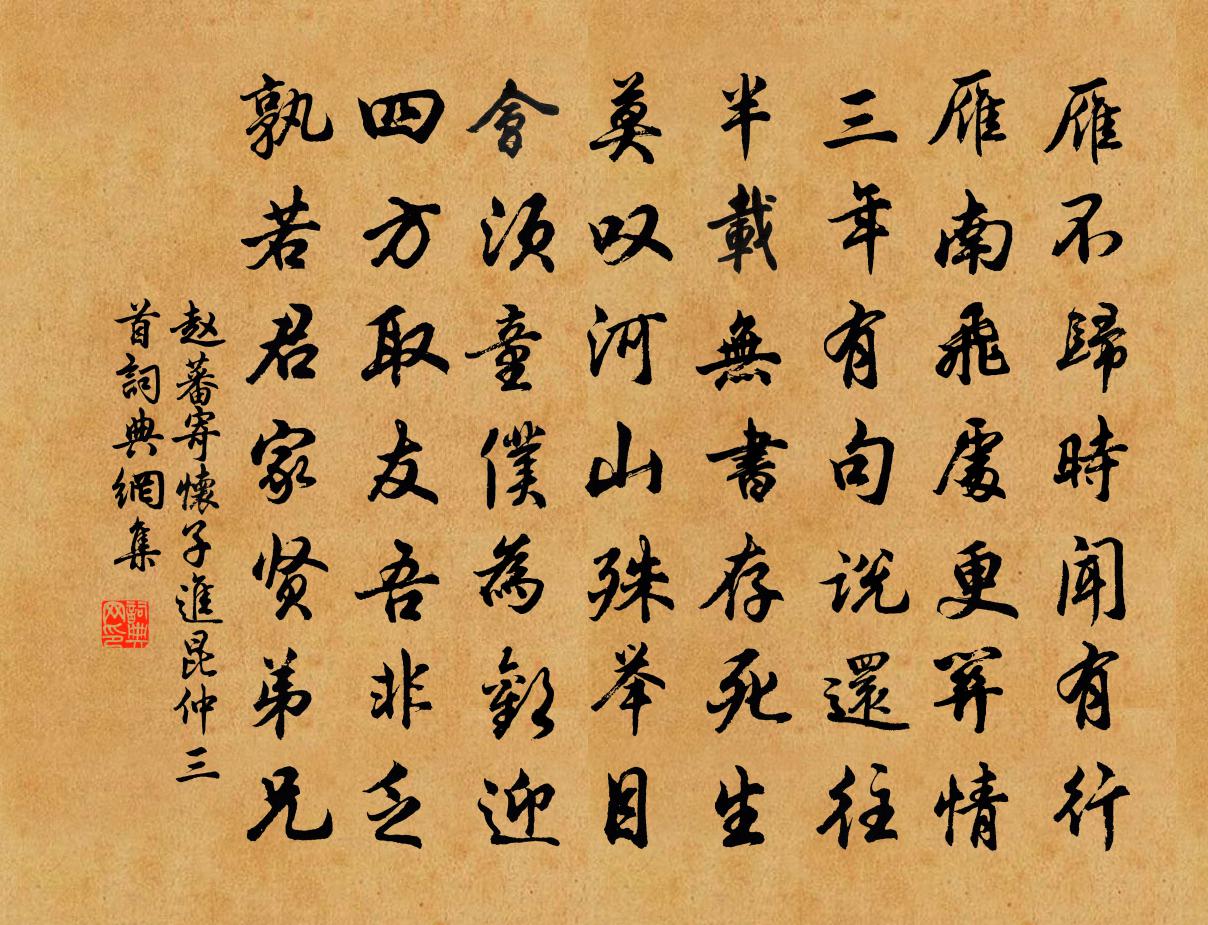 雁不歸時闻有行
雁南飛處更関情
三年有句说還往
半載無書存死生
莫叹河山殊举目
會須童僕為歡迎
四方取友吾非乏
孰若君家贤弟兄
赵蕃寄懷子進昆仲三
首詞典網集
詞典网印